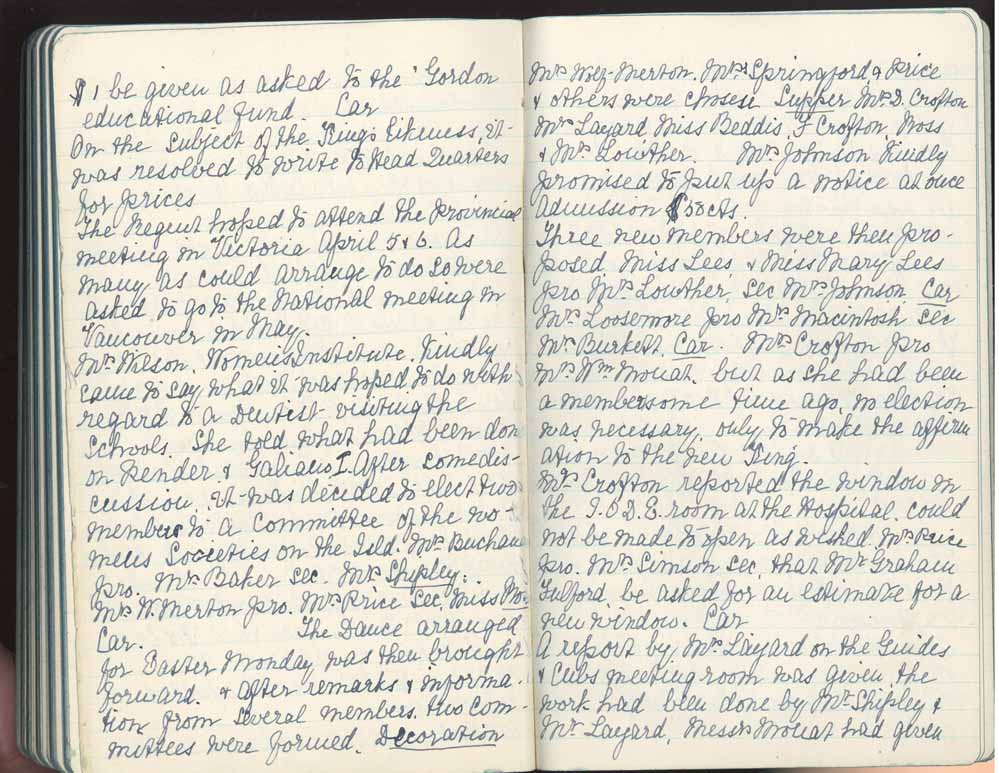 $1 be given as asked to the Gordon
educational fund. Car
On the subject of the King's Likeness, it
was resolved to write to Head Quarters
for prices
The Regent hoped to attend the Provincial
meeting in Victoria April 5 & 6. As
many as could arrange to do so were
asked to go to the National meeting in
Vancouver in May.
Mrs Wilson, Women's Institute. Kindly
came to say what it was hoped to do with
regard to a Dentist visiting the
Schools. She told what had been done
on Pender & Galiano I. After some dis-
cussion, it was decided to elect two
members to a Committee of the wo-
mens Societies on the Isld. Mrs Buchan
pro. Mrs Baker sec. Mrs Shipley.
Mrs W. Merton pro. Mrs Price sec, Miss
Car. The Dance arranged
for Easter Monday was then brought
forward. & after remarks & informa-
tion from several members. two com-
mittees were formed. Decoration
Mrs Wolf-Merton. Mrs Springford & Price
& others were chosen Supper Mrs D. Crofton
Mrs Layard Miss Beddis, F Crofton, Moss
& Mrs Louther. Mrs Johnson Kindly
promised to put up a notice at once
Admission 50cts.
Three new members were then pro-
posed. Miss Lees & Miss Mary Lees
pro Mrs Louther, sec Mrs Johnson. Car
Mrs Loosemore pro Mrs Macintosh sec
Mrs Burkett. Car. Mrs Crofton pro
Mrs Wm Mouat. but as she had been
a member some time ago, no election
was necessary. only to make the affirm
ation to the new King.
Mrs Crofton reported the window in
the I.O.D.E. room at the Hospital could
not be made to open as wished. Mrs Price
pro. Mrs Simson sec, that Mr Graham
Fulford be asked for an estimate for a
new window. Car
A report by Mrs Layard on the Guides
& Cubs meeting room was given. the
work had been done by Mr Shipley &
Mr Layard, Messrs Mouat had given